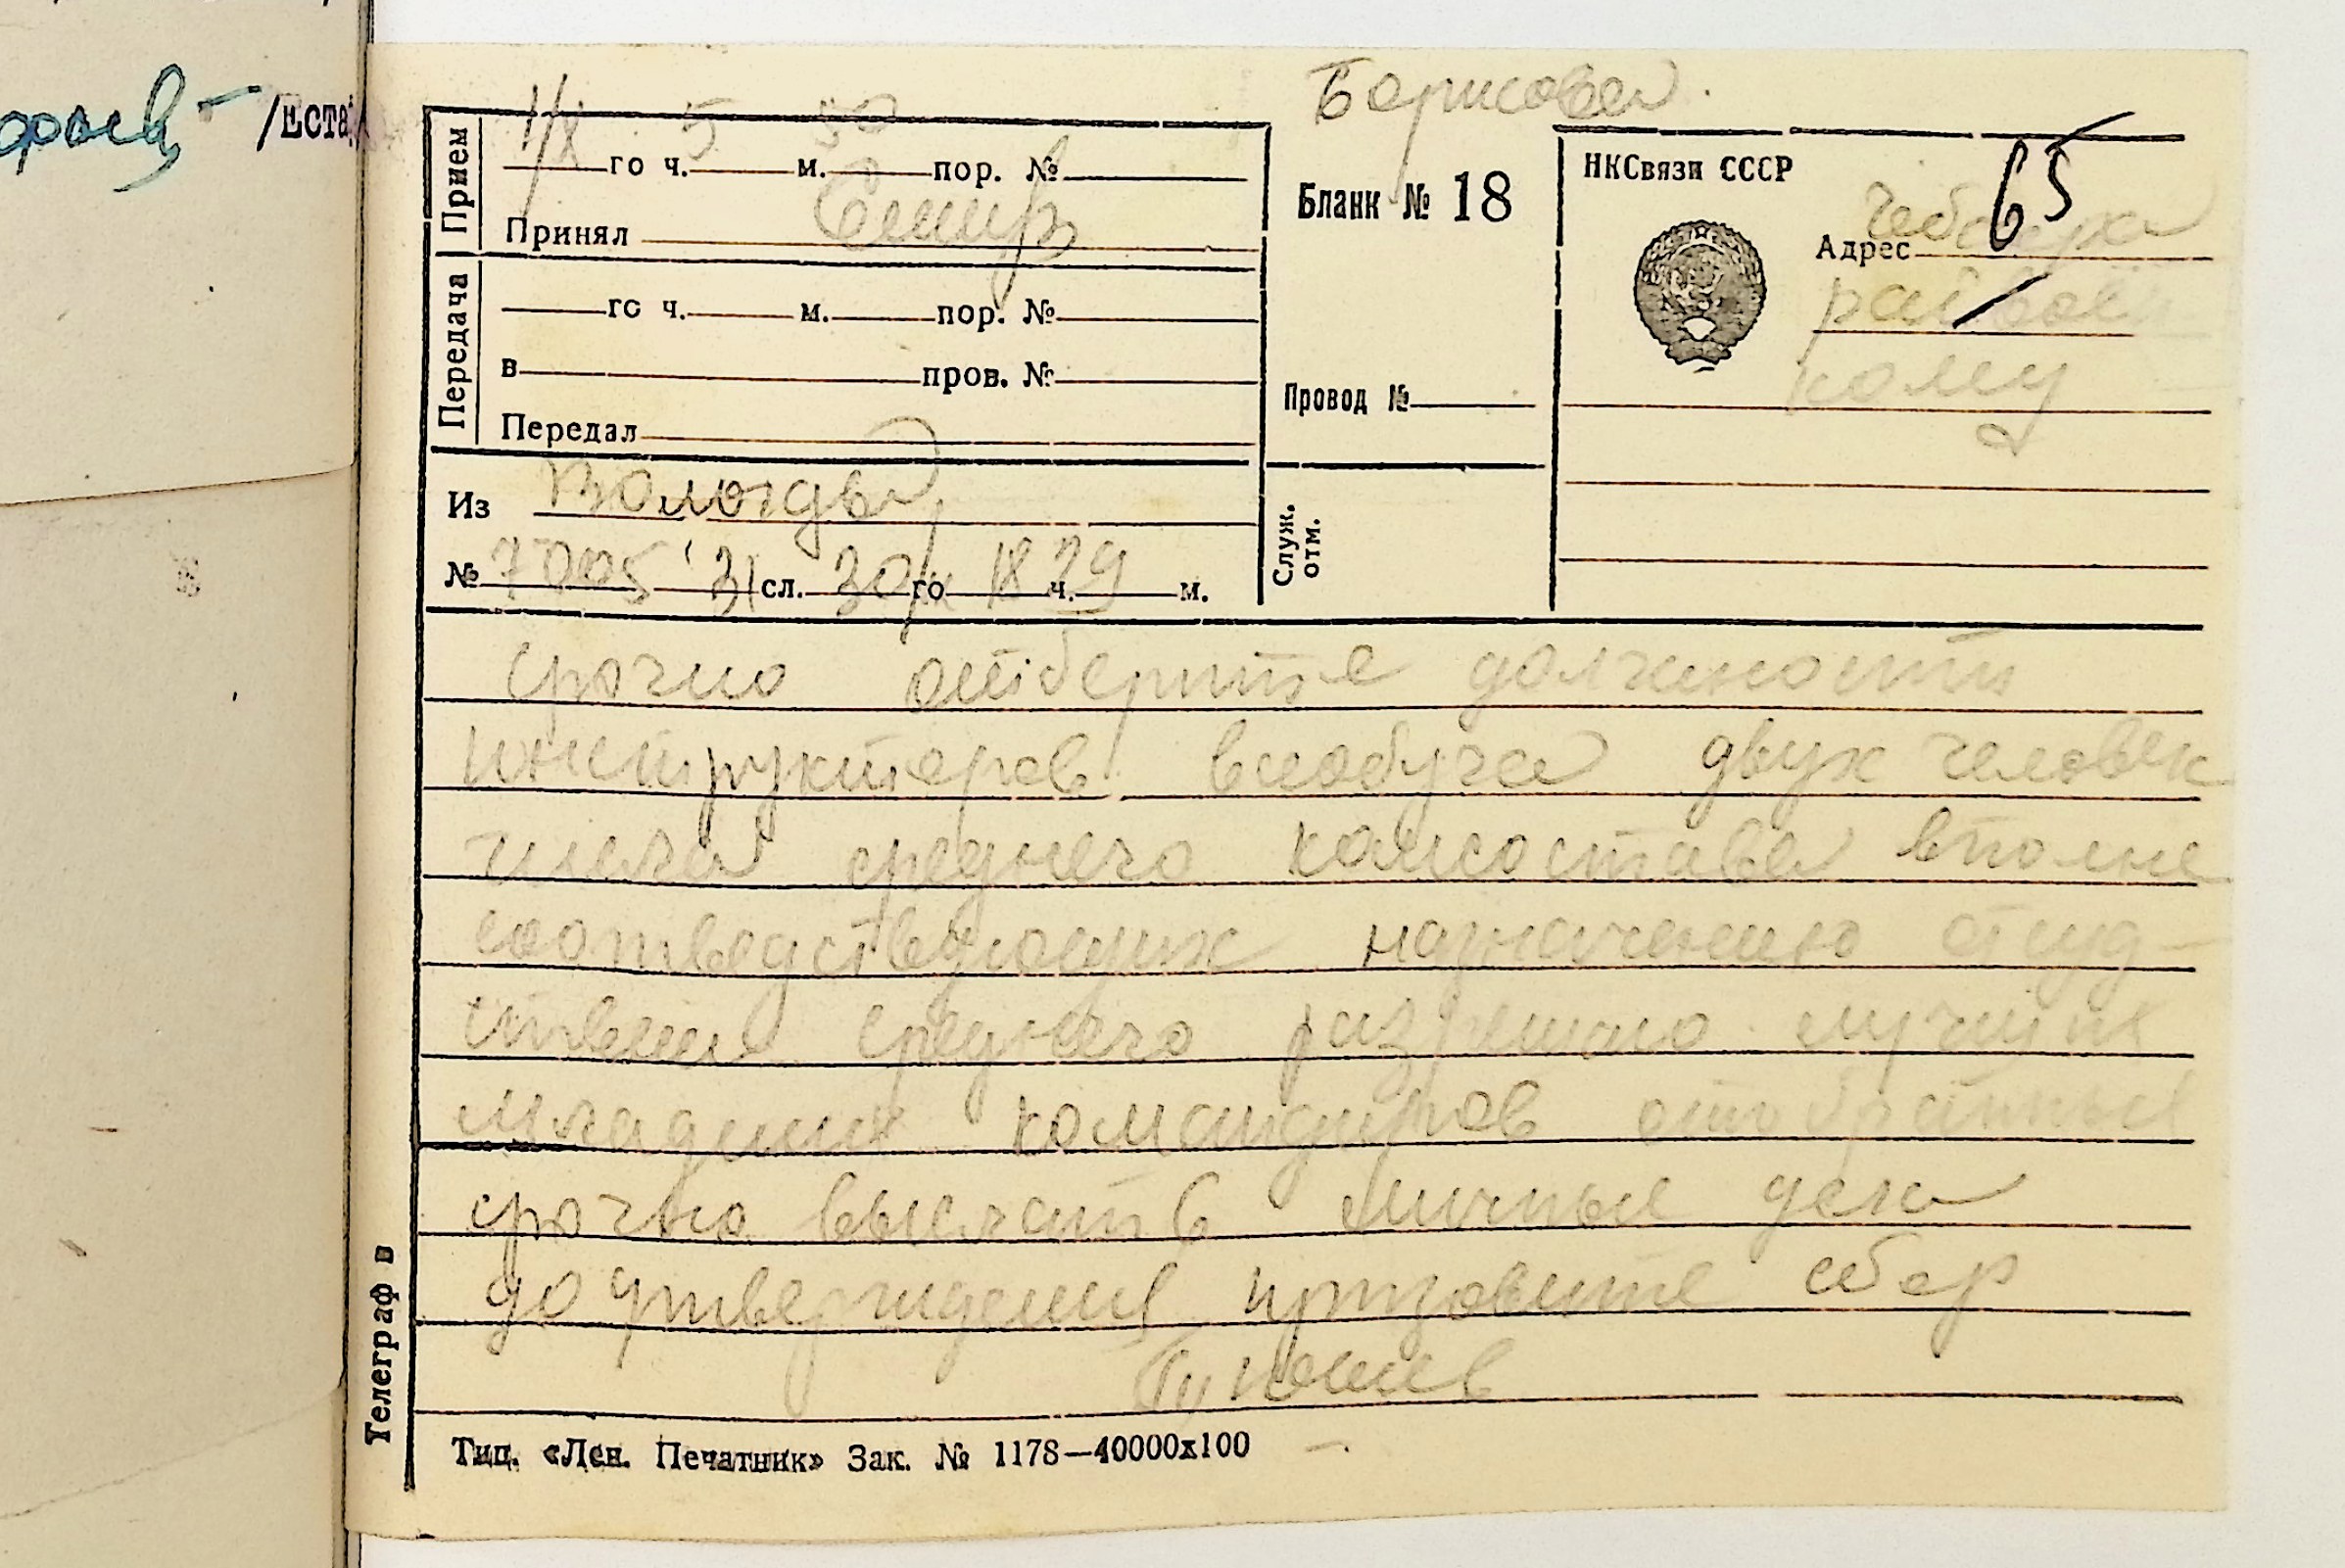 /Еста
Борисова.
1/X 5 50
Прием
го ч. м. пор. №
Принял
Бланк № 18
НКСвязи СССР
65
Адрес
Передача
го ч. м. пор. №
в пров. №
Передал
Провод №
кому
Из Вологды
№ 7005 31 сл. 30/IX го 18 ч. 29 м.
Служ. отм.
срочно отберите должности
инструкторов всеобуча двух человек
числа среднего комсостава вполне
соответствующих назначению отсуд-
ствии среднего разрешаю лучших
младших командиров отобранных
срочно выслать личные дела
до утверждения призовите сбор
Телеграф в
Тип. «Лен. Печатник» Зак. № 1178—40000х100